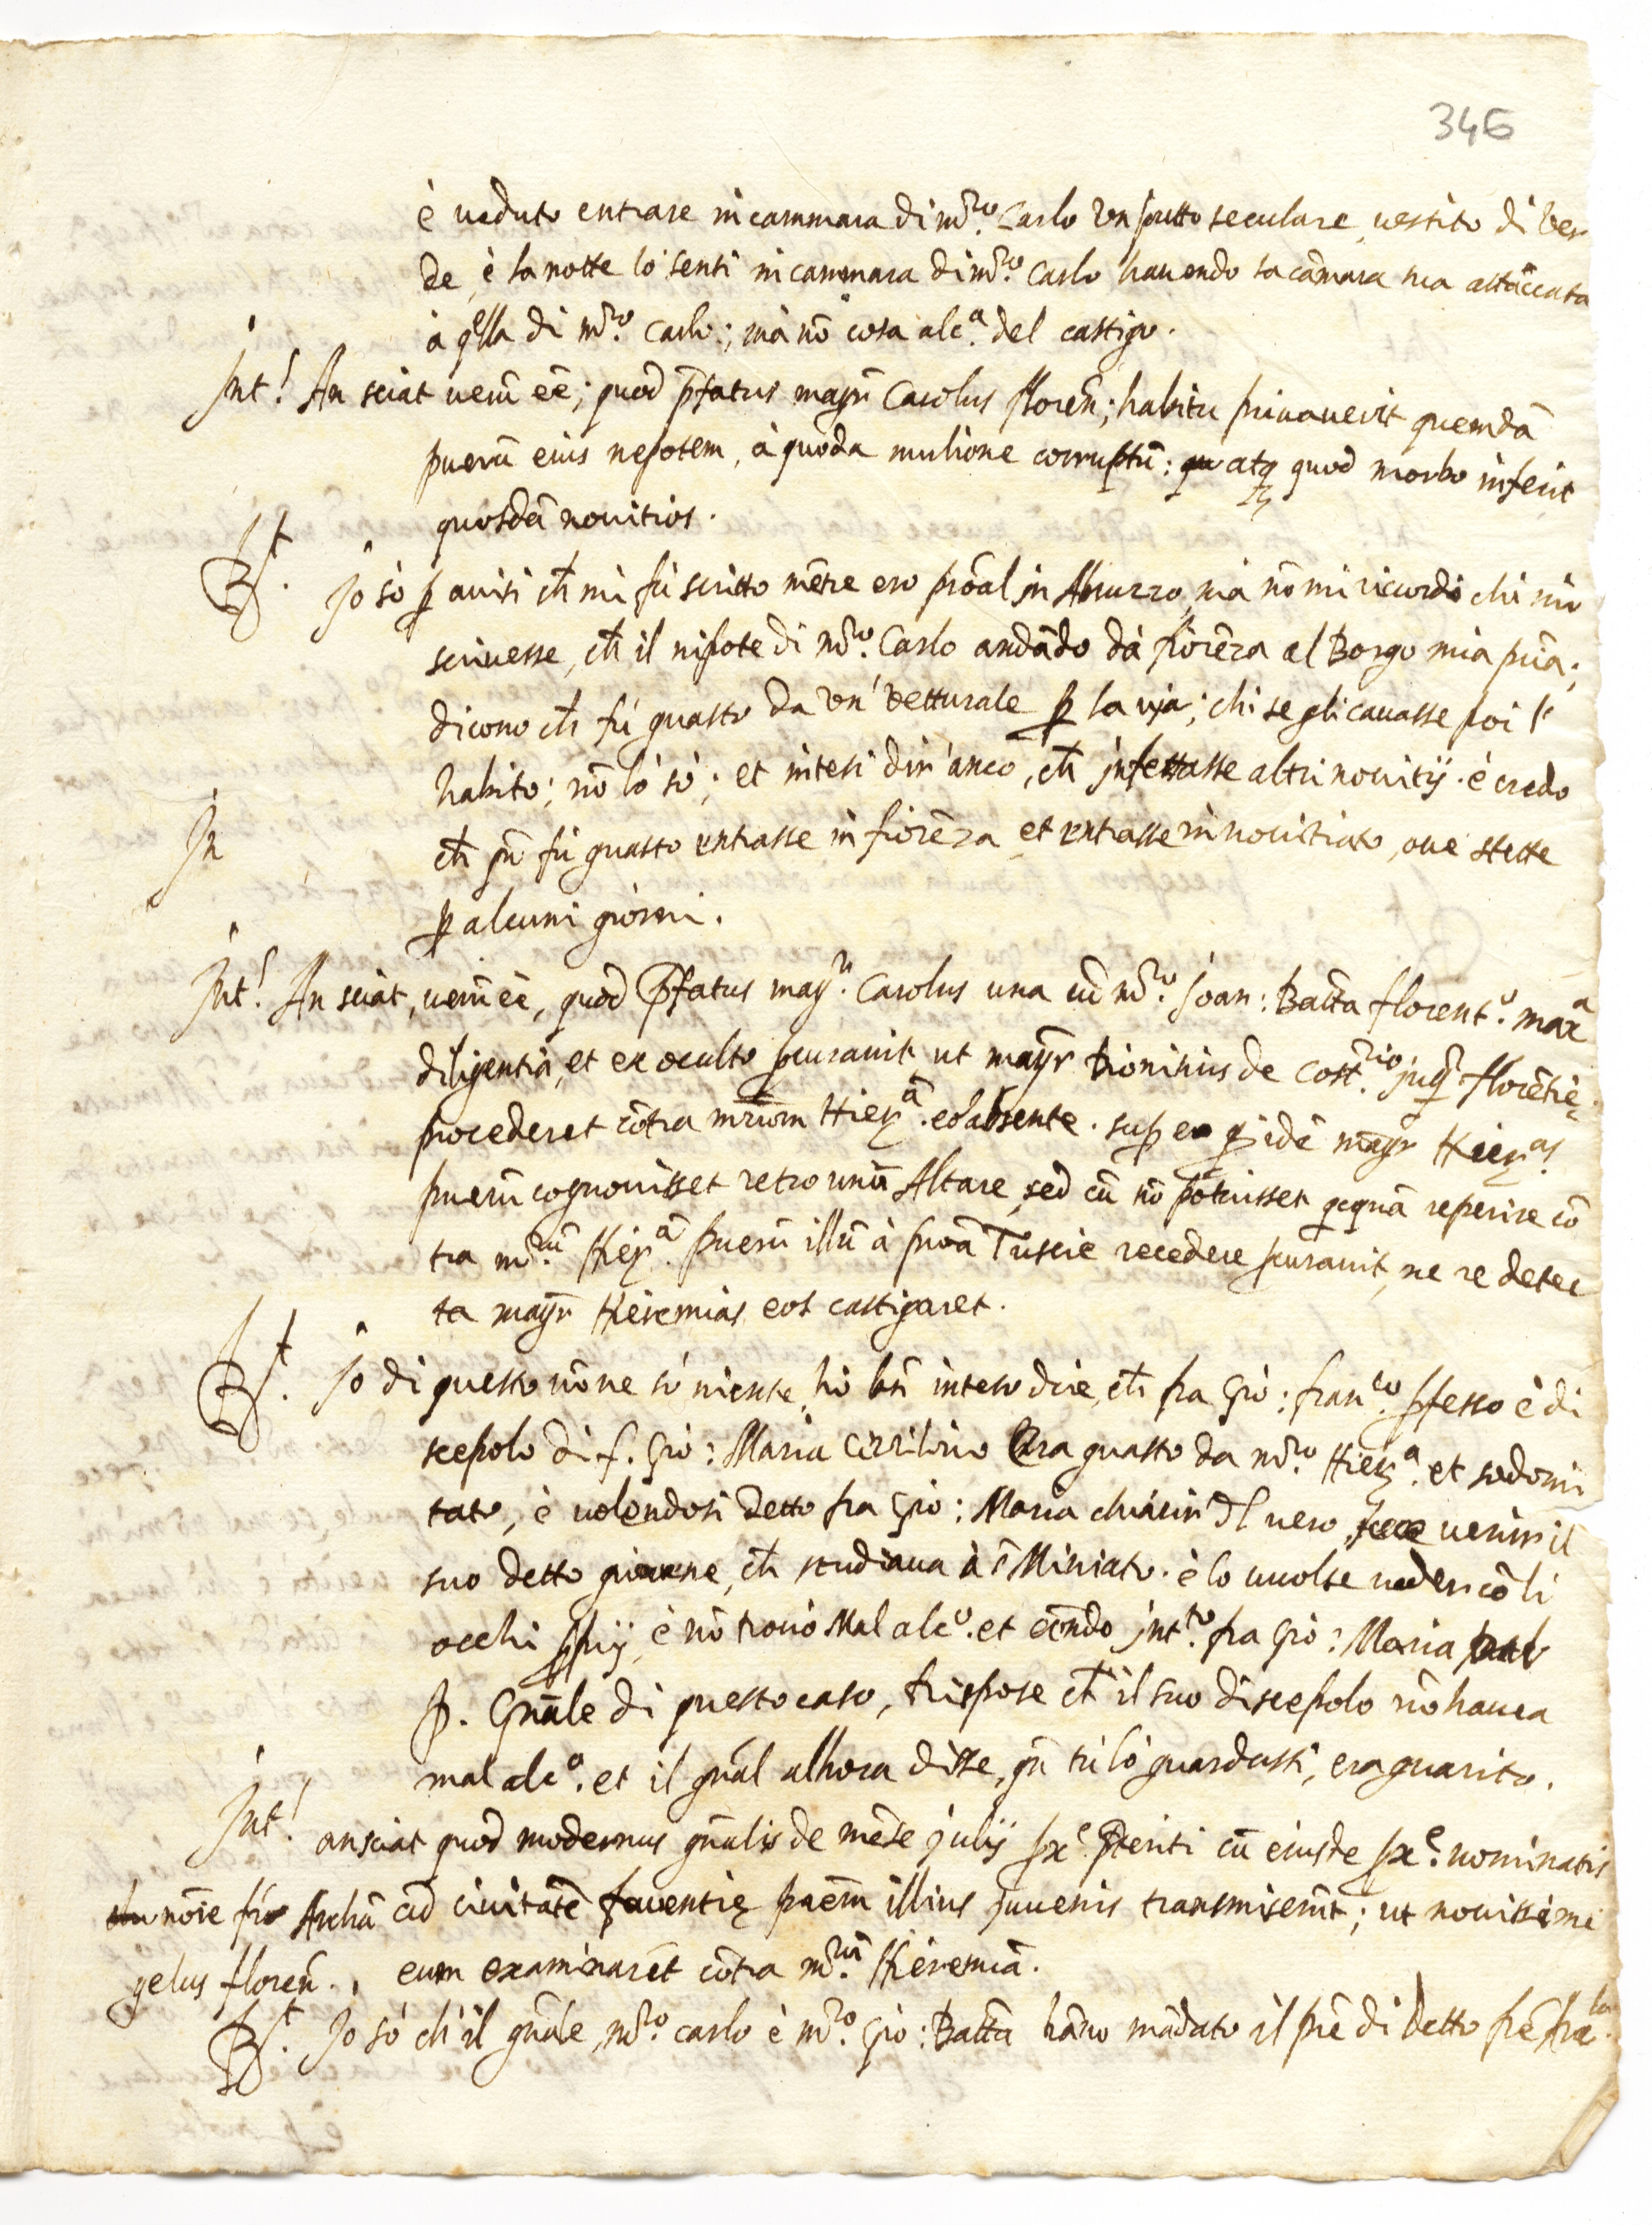 346
è ueduto entrare in cammara di m.ro Carlo un putto seculare, uestito di ver
de, è la notte lo senti in cammara di m.ro Carlo hauendo la cāmara sua attaccata
à q.lla di m.ro Carlo; mà nō cosa alc.a del castigo.
Int.! An sciat uerū eē; quod p̄fatus mag.r Carolus floren̄; habitu priuauerit quendā
puerū eius nepotem, à quodā mulione corruptū: atq; quod morbo inferit
quosdā nouitios.
R.t Jo sò ꝑ auisi ch̄ mi fù scritto mētre ero prōal in Abruzzo, mà nō mi ricordo chi mi
scriuesse, ch̄ il nipote di m.ro Carlo andādo dà fiorēza al Borgo mia p̄ria;
dicono ch̄ fù guasto da un' vetturale ꝑ la uia; chi se gli cauasse poi l'
habito; nō lo sò; et intesi dir' anco, ch̄ infettasse altri nouitij. è credo
Jn
ch̄ qn̄ fù guasto entrasse in fiorēza, et entrasse in nouitiato, oue stette
ꝑ alcuni giorni.
Int.! An sciat, uerū eē, quod p̄fatus mag.r Carolus una cū m.ro Joan: Batt̄a florent.o max.a
diligentia, et ex oculto ꝓcurauit, ut mag.r Dioninius de Cost.rio inq.r florētię
procederet cōtra mr̄um Hier.ā eo absente. sup eo q idē mag.r Hier.as
puerū cognouisset retro unū Altare, sed cū nō potuisset qcquā reperire cō
tra m.rū Hier.ā puerū illū à prōa Tuscie recedere ꝓcurauit, ne re detec
ta mag.r Hieremias eos castigaret.
R.t Jo di questo nō ne sò niente, hò bn̄ inteso dire, ch̄ fra Gio: fran.co ꝓfesso è di
scepolo di f. Gio: Maria Cirilino Era guasto da m.ro Hier.a et sodomi
tato, è uolendosi detto fra Gio: Maria chiarir' Il uero, fece uenir il
suo detto giouene, ch̄ studiaua à S Miniato. è lo uuolse ueder cō li
occhi ꝓprij, è nō trouò mal alc.o et eēndo int.to fra Gio: Maria dal
P. Gn̄ale di questo caso, rispose ch̄ il suo discepolo nō hauea
mal alc.o et il gn̄al alhora disse, qn̄ tu lo guardasti, era guarito.
Int.! an sciat quod modernus gn̄alis de mēse Julij px.e p̄teriti cū eiusdē px.e nominatis
nōie fr̄ Archā ad ciuitatē fauentię pr̄em illius juuenis transmiserūt; ut nouissime
gelus floren̄. eum examinarēt cōtra m.rū Hieremiā.
R.t Jo sò ch' il gn̄ale, m.ro Carlo è m.ro Gio: Batt̄a hāno mādato il prē di detto frē